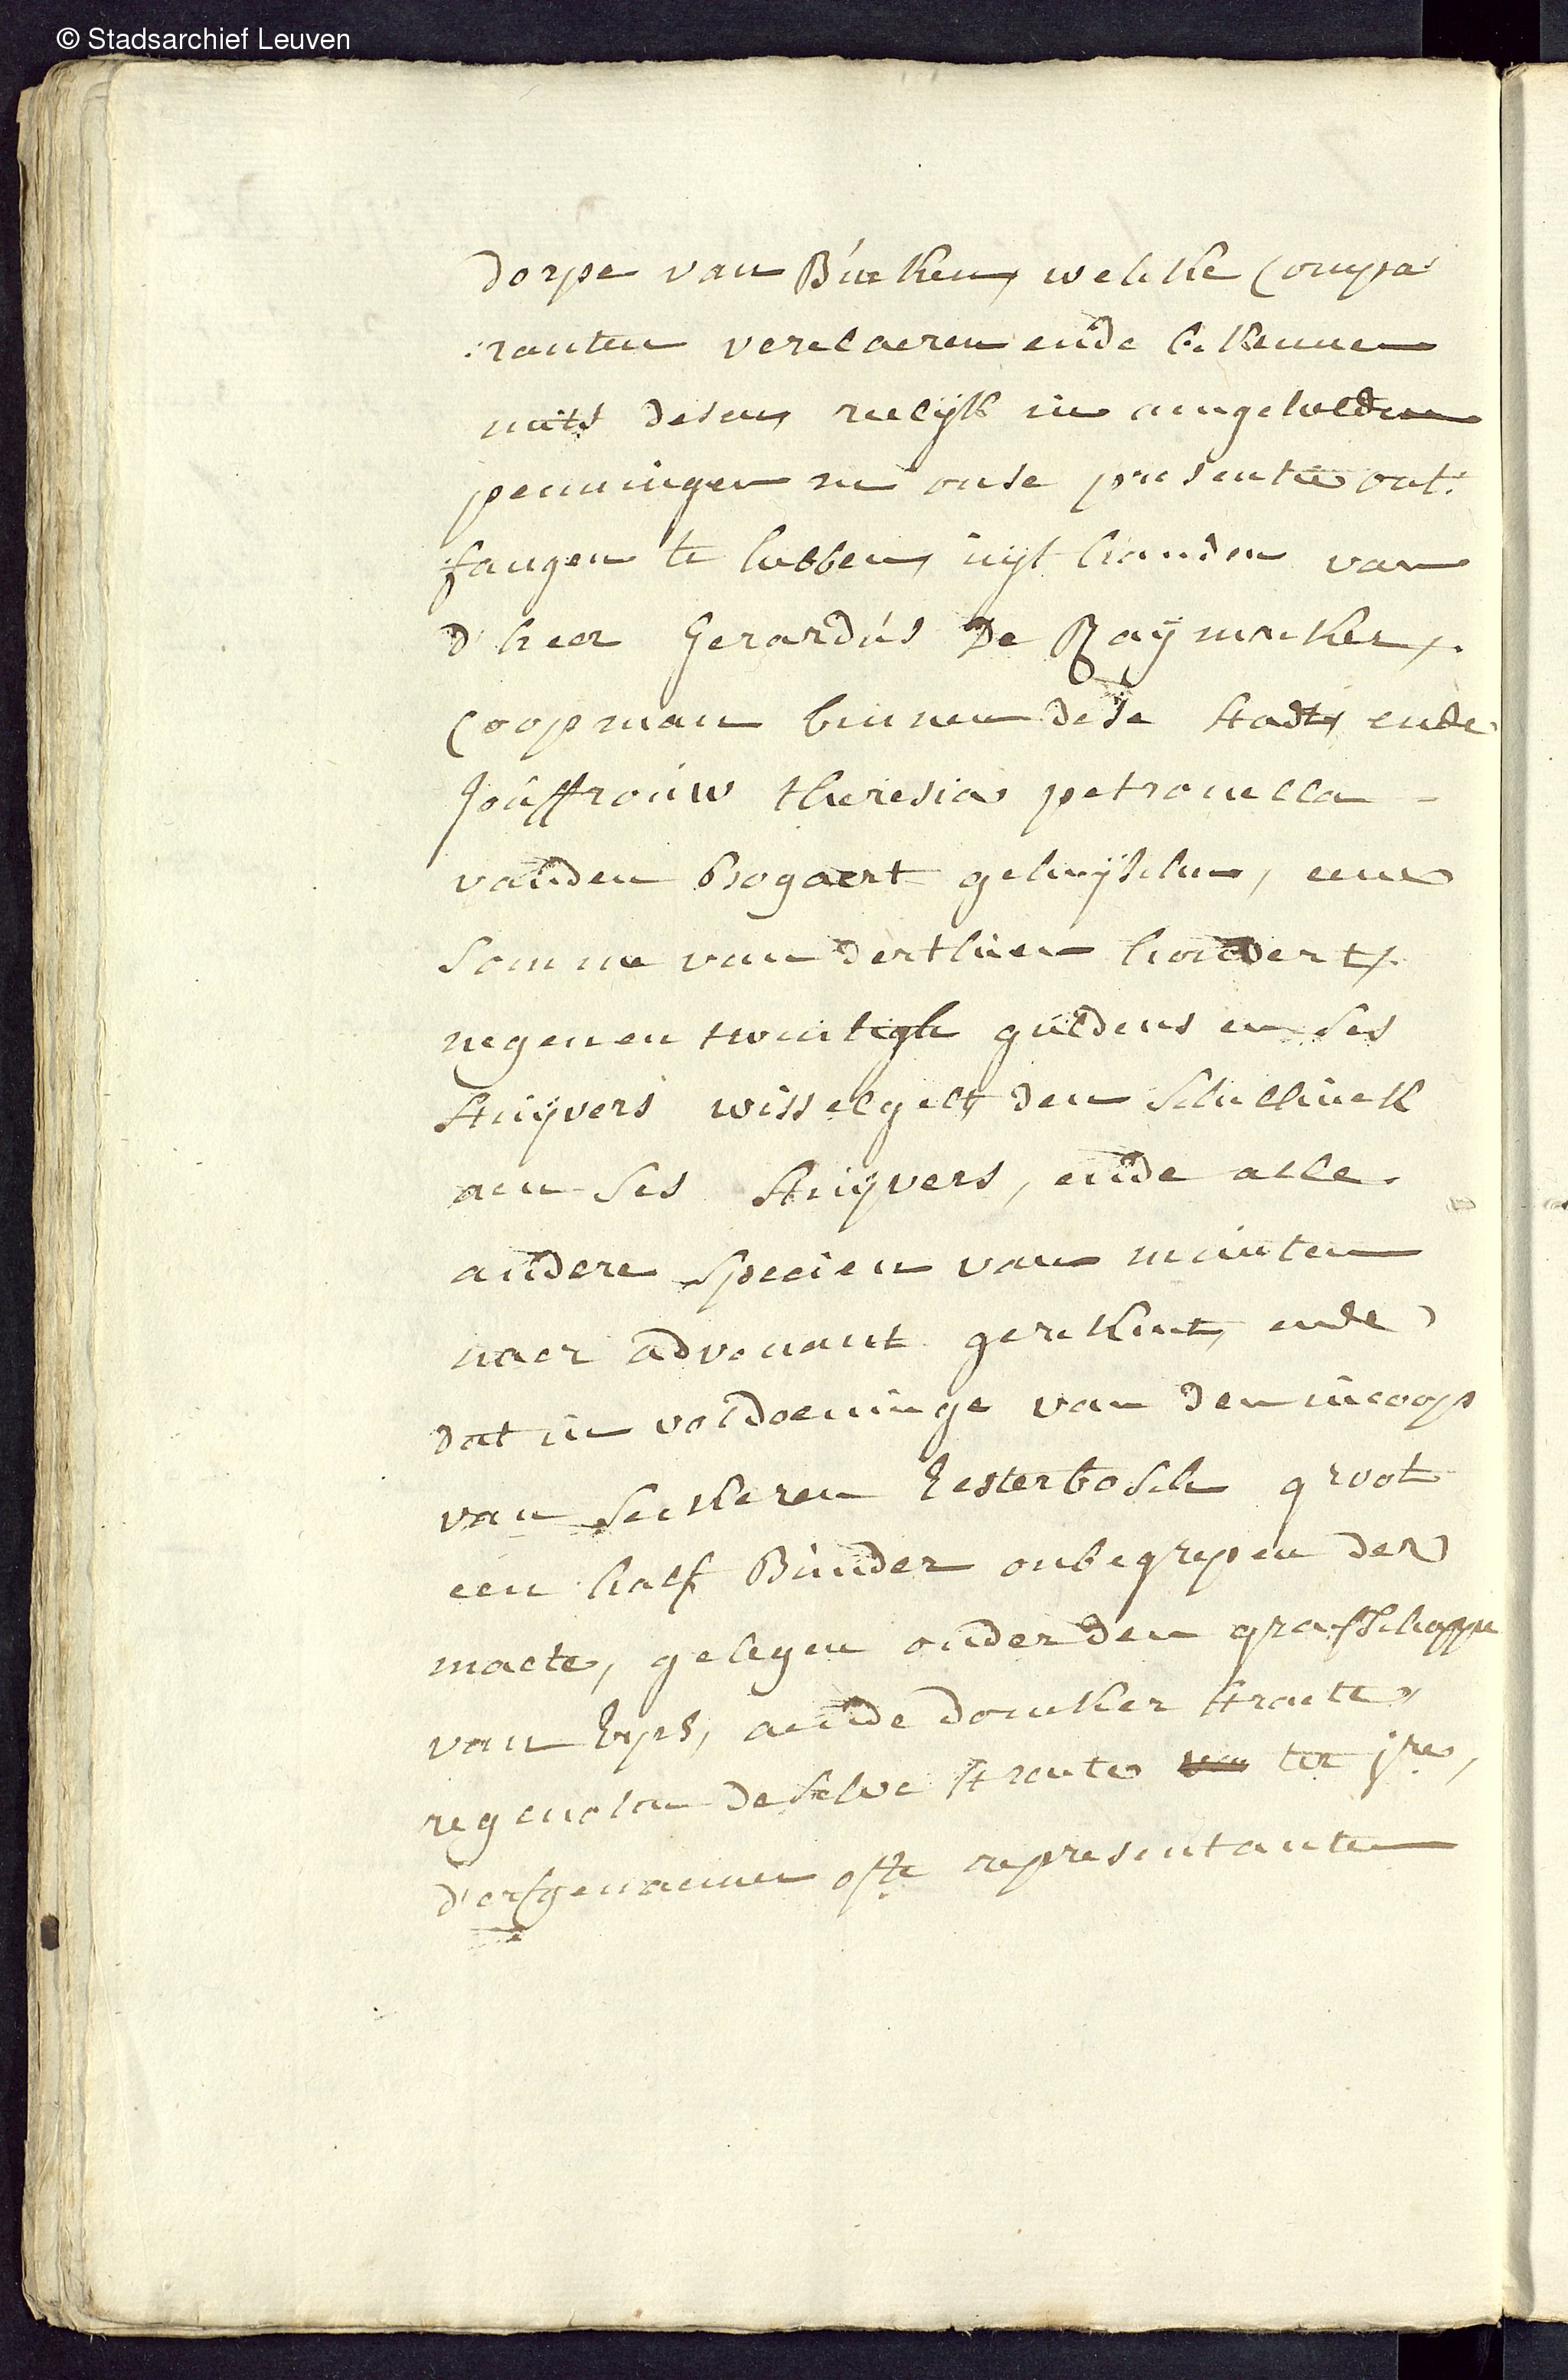 © Stadsarchief Leuven
dorpe van Bueken, welcke Compa
:ranten verclaeren ende bekennen
mits desen, reelijk in aengetelden
penningen in onse presentie ont:
fangen te hebben, uijt handen van
d'heer Gerardús De Raÿmaeker,
Coopman binnen dese stadt, ende
Jouffrouw theresia petronella -
vanden Bogaert gehuÿschen, eene
somme van derthien hondert,
negenen twintigh guldens en ses
stuÿvers wisselgelt, den schellinck
aen ses stuÿvers, ende alle
andere specien van munten
naer advenant gerekent, ende
dat in voldoeninge van den incoop
van sekeren Eesterbosch groot
een half Bunder onbegrepen der
maete, gelegen onder den graefschappe
van Erps, aende doncker straete,
regenoten de selve straete van ter jre,
d'erfgenaemen ofte representanten